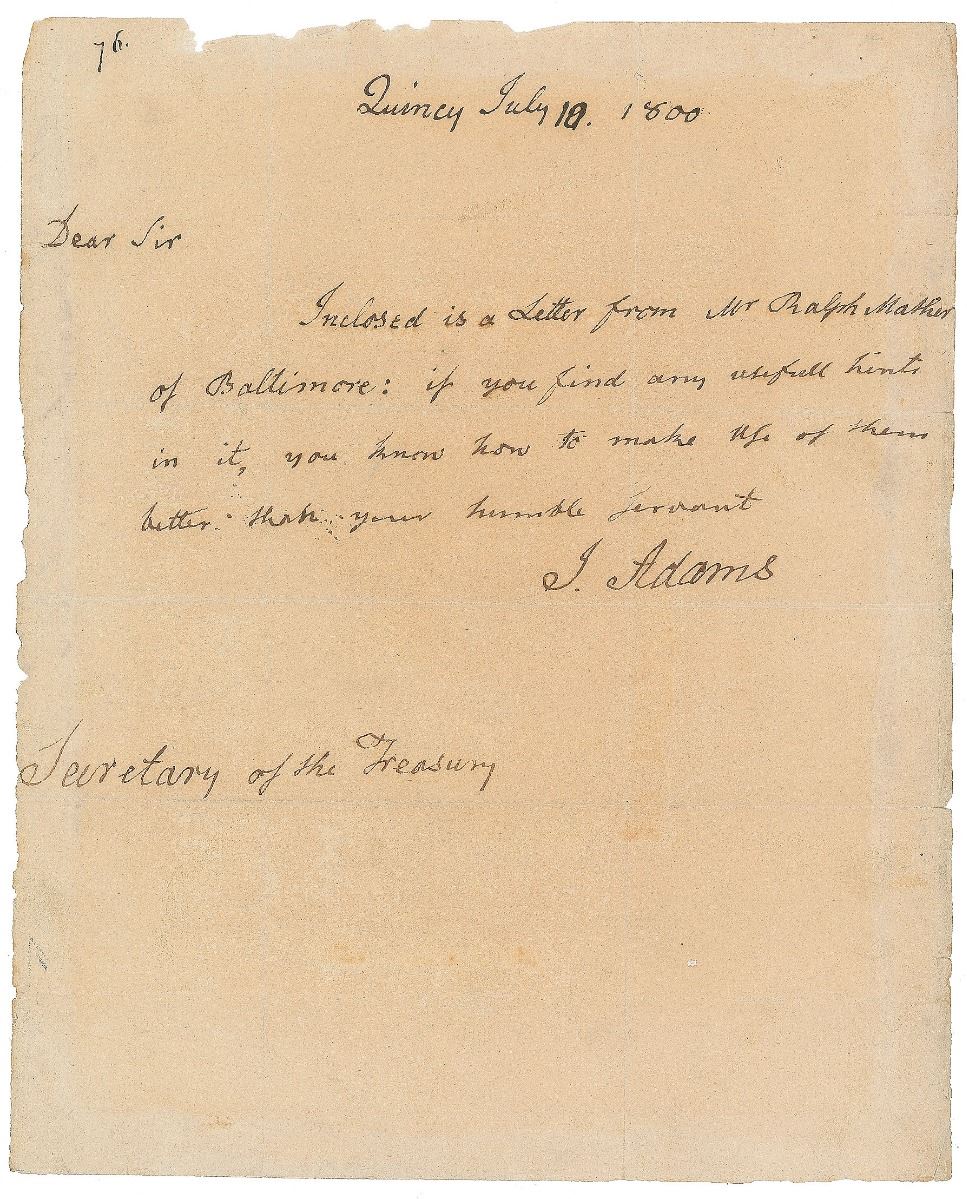 76.
Quincy July 10. 1800
Dear Sir
Inclosed is a Letter from Mr Ralph Mather
of Baltimore: if you find any usefull hints
in it, you know how to make Use of them
better than your humble servant
J. Adams
Secretary of the Treasury